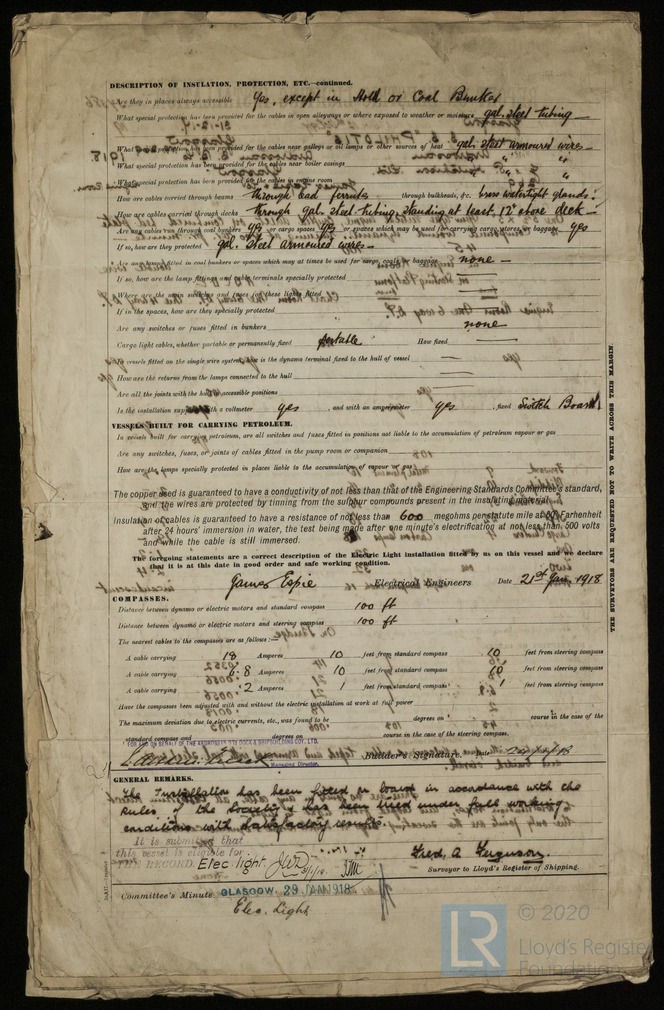 DESCRIPTION OF INSULATION, PROTECTION, ETC.—continued.
Are they in places always accessible Yes, except in Hold or Coal Bunker
What special protection has been provided for the cables in open alleyways or where exposed to weather or moisture gal. steel tubing
What special protection has been provided for the cables near galleys or oil lamps or other sources of heat gal. steel armoured wires
What special protection has been provided for the cables near boiler casings "
What special protection has been provided for the cables in engine room "
How are cables carried through beams through lead ferrules through bulkheads, &c. brass watertight glands.
How are cables carried through decks through gal. steel tubing, standing at least 12" above deck
Are any cables run through coal bunkers yes or cargo spaces yes or spaces which may be used for carrying cargo, stores, or baggage yes
If so, how are they protected gal. steel armoured wires
Are any lamps fitted in coal bunkers or spaces which may at times be used for cargo, coals, or baggage none
If so, how are the lamp fittings and cable terminals specially protected
Where are the main switches and fuses for these lights fitted
If in the spaces, how are they specially protected
Are any switches or fuses fitted in bunkers none
Cargo light cables, whether portable or permanently fixed portable How fixed
In vessels fitted on the single wire system, how is the dynamo terminal fixed to the hull of vessel
How are the returns from the lamps connected to the hull
Are all the joints with the hull in accessible positions
Is the installation supplied with a voltmeter yes, and with an amperemeter yes, fixed Switch Board
VESSELS BUILT FOR CARRYING PETROLEUM.
In vessels built for carrying petroleum, are all switches and fuses fitted in positions not liable to the accumulation of petroleum vapour or gas
Are any switches, fuses, or joints of cables fitted in the pump room or companion
How are the lamps specially protected in places liable to the accumulation of vapour or gas
The copper used is guaranteed to have a conductivity of not less than that of the Engineering Standards Committee's standard,
and the wires are protected by tinning from the sulphur compounds present in the insulating material.
Insulation of cables is guaranteed to have a resistance of not less than 600 megohms per statute mile at 60° Farhenheit
after 24 hours' immersion in water, the test being made after one minute's electrification at not less than 500 volts
and while the cable is still immersed.
The foregoing statements are a correct description of the Electric Light installation fitted by us on this vessel and we declare
that it is at this date in good order and safe working condition.
James Espie Electrical Engineers Date 21st Jan. 1918
COMPASSES.
Distance between dynamo or electric motors and standard compass 100 ft
Distance between dynamo or electric motors and steering compass 100 ft
The nearest cables to the compasses are as follows:—
A cable carrying 18 Amperes 10 feet from standard compass 10 feet from steering compass
A cable carrying 6.8 Amperes 10 feet from standard compass 10 feet from steering compass
A cable carrying .2 Amperes 1 feet from standard compass 1 feet from steering compass
Have the compasses been adjusted with and without the electric installation at work at full power
The maximum deviation due to electric currents, etc., was found to be degrees on course in the case of the
standard compass and degrees on course in the case of the steering compass.
FOR AND ON BEHALF OF THE ARDROSSAN DRY DOCK & SHIPBUILDING COY., LTD.
Managing Director. Builder's Signature. Date
GENERAL REMARKS.
The Installation has been fitted on board in accordance with the
Rules of the Society & has been tried under full working
conditions with satisfactory results.
It is submitted that
this vessel is eligible for
THE RECORD. Elec light
Fred. A. Ferguson.
Surveyor to Lloyd's Register of Shipping.
Committee's Minute GLASGOW 29 JAN 1918
Elec. Light
THE SURVEYORS ARE REQUESTED NOT TO WRITE ACROSS THIS MARGIN.
LR
© 2020
Lloyd's Register
Foundation